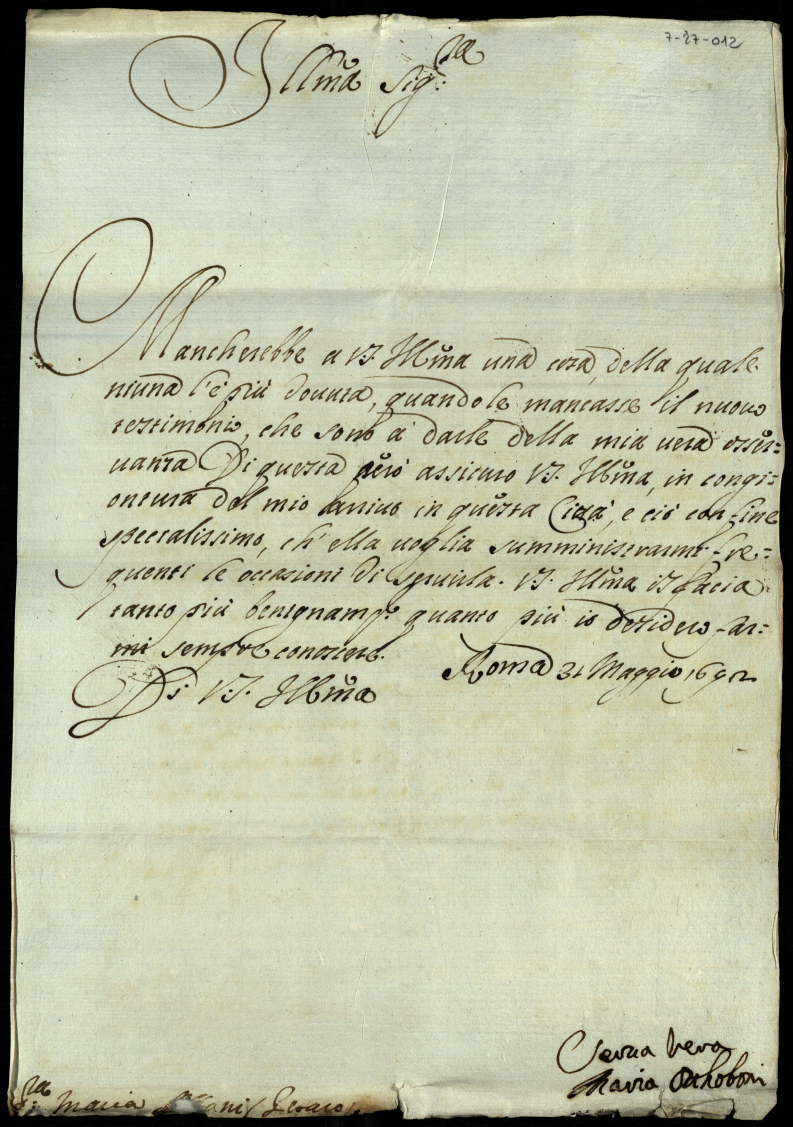 7-27-012
Illma Sig:ra
Mancherebbe a VS. Illma una cosa, della quale
niuna l'è più dovuta, quando le mancasse il nuovo
testimonio, che sono à darle della mia vera osser=
vanza Di questa però assicuro VS. Illma, in congi=
ontura del mio arrivo in questa Città, e ciò con fine
specialissimo, ch'ella voglia somministrarmi fre=
quenti le occasioni di servirla. VS. Illma il faccia
tanto più benignam.te quanto più io desidero far=
mi sempre conoscere.
Roma 31 Maggio 1692
Di VS. Illma
Serua Vera
Maria Otthoboni
S:ra Maria